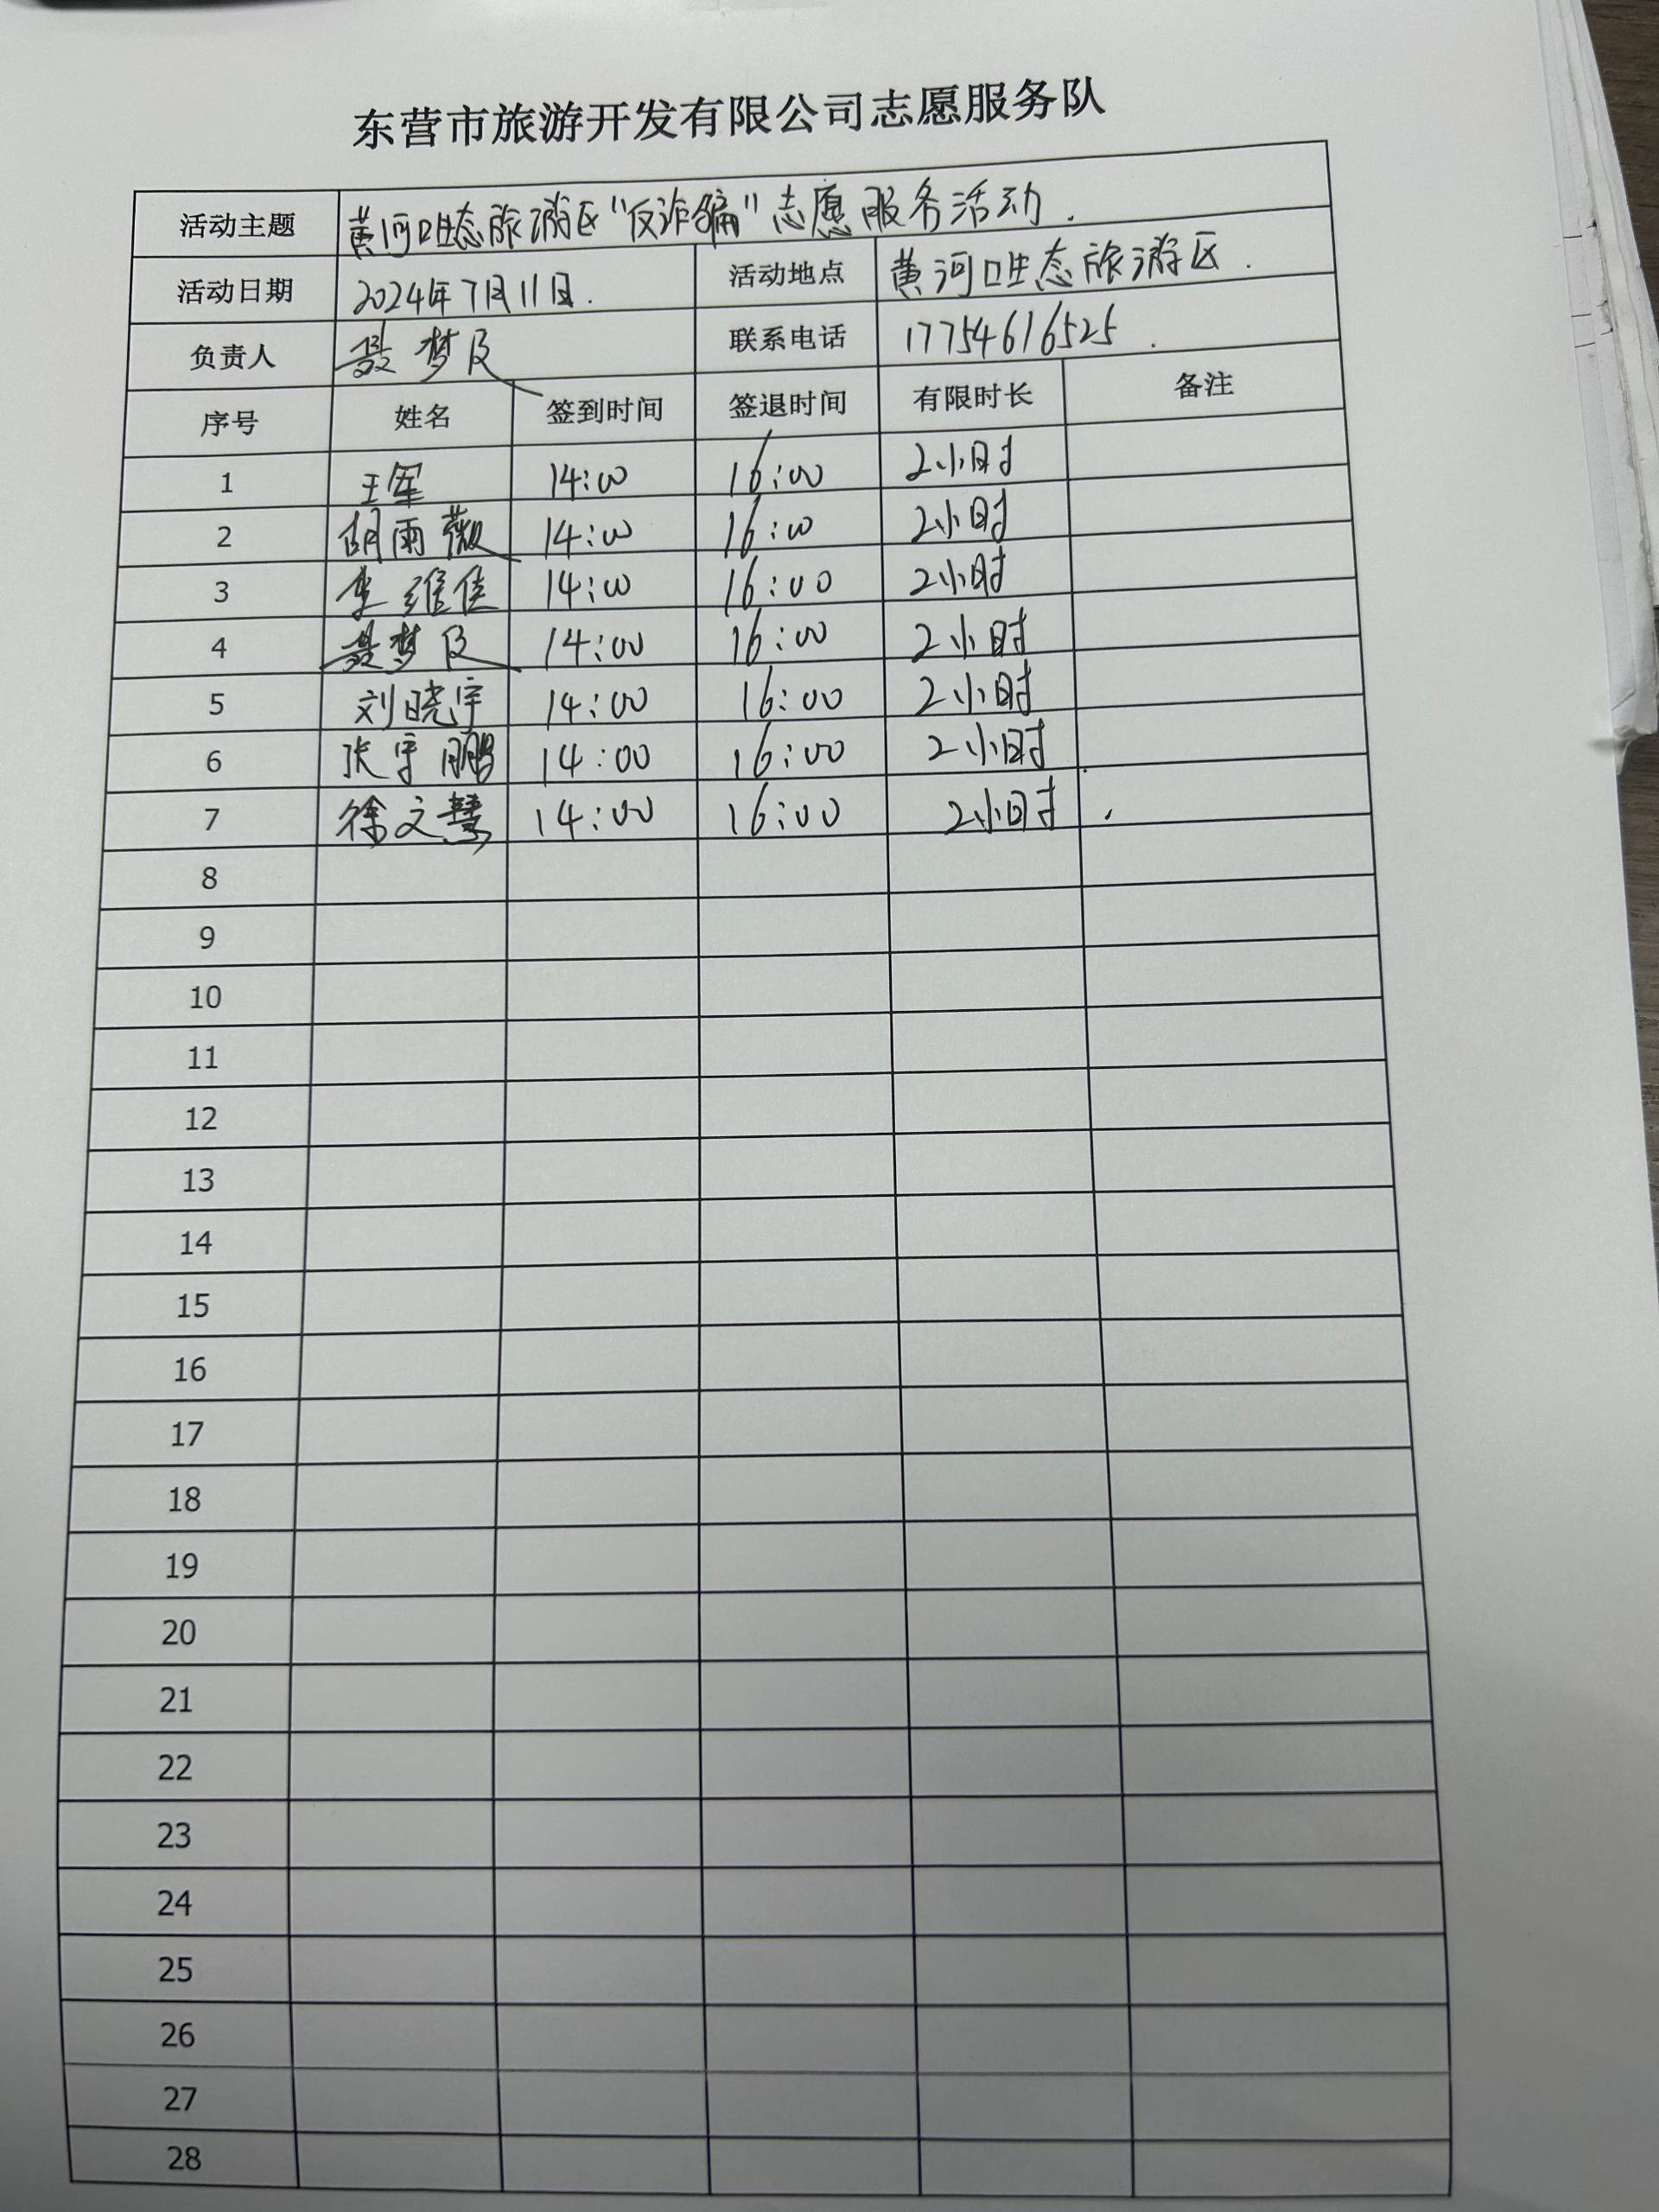 东营市旅游开发有限公司志愿服务队
活动主题 黄河口生态旅游区“反诈骗”志愿服务活动.
活动日期 2024年7月11日. 活动地点 黄河口生态旅游区.
负责人 聂梦 联系电话 17754616525.
序号 姓名 签到时间 签退时间 有限时长 备注
1 王军 14:00 16:00 2小时
2 胡雨薇 14:00 16:00 2小时
3 李维佳 14:00 16:00 2小时
4 聂梦 14:00 16:00 2小时
5 刘晓宇 14:00 16:00 2小时
6 张宇鹏 14:00 16:00 2小时
7 徐文慧 14:00 16:00 2小时.
8
9
10
11
12
13
14
15
16
17
18
19
20
21
22
23
24
25
26
27
28